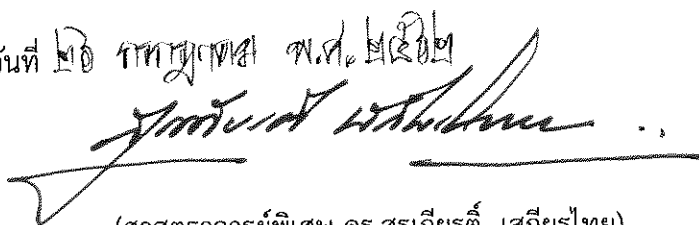 วันที่ ๒๖ กรกฎาคม พ.ศ. ๒๕๖๒
(ศาสตราจารย์พิเศษ ดร.สุรเกียรติ์ เสถียรไทย)